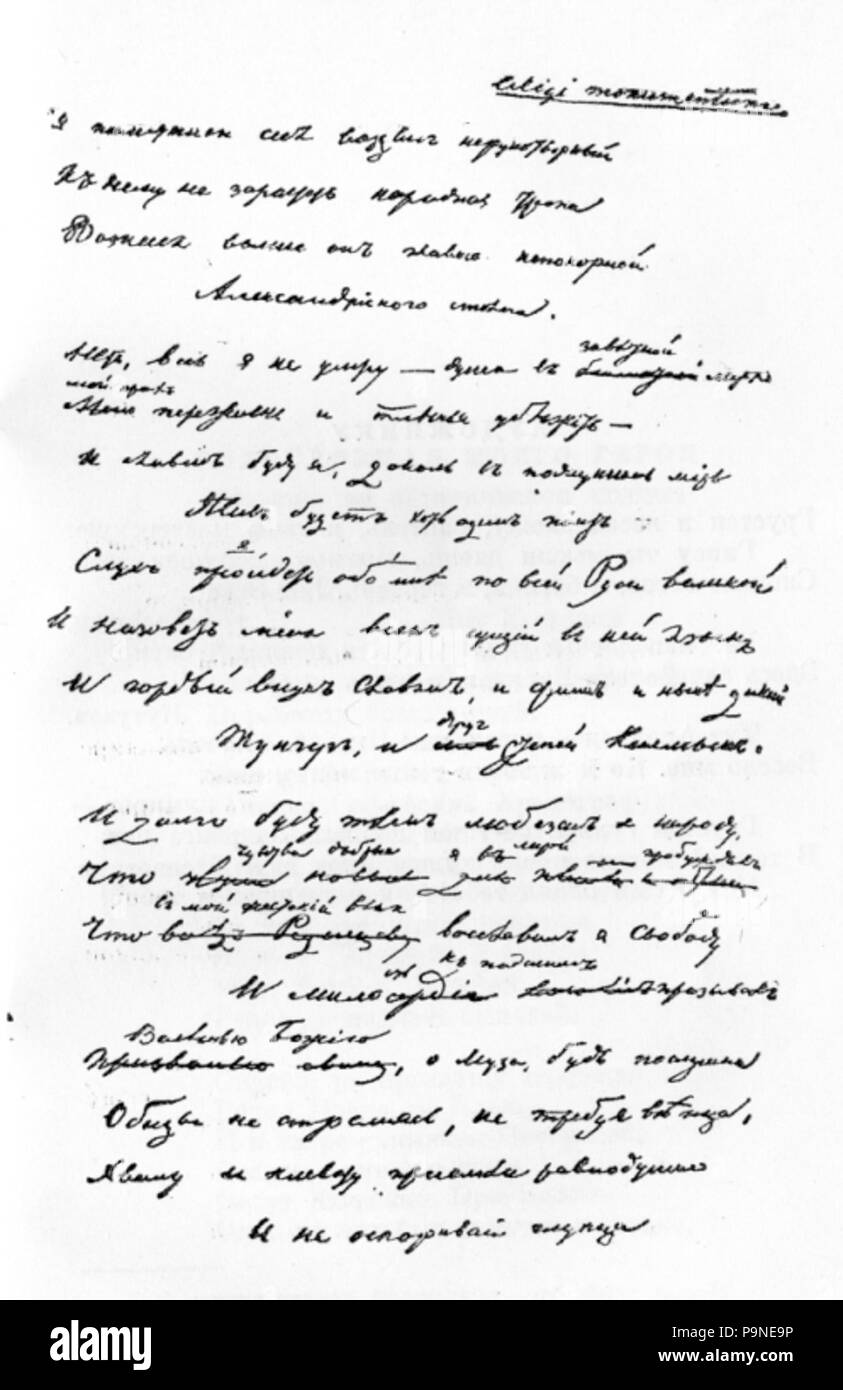 Exegi monumentum
Я памятник себѣ воздвигъ нерукотворный
Къ нему не заростетъ народная тропа
Вознесся выше онъ главою непокорной
Александрійского столпа.
Нѣтъ, весь я не умру — душа въ
завѣтной
лирѣ
мой прахъ
переживетъ и тлѣнья убѣжитъ —
И славенъ буду я, доколь въ подлунномъ мірѣ
Живъ будетъ хоть одинъ піитъ
Слухъ пройдетъ обо мнѣ по всей Руси великой
И назоветъ меня всякъ сущій въ ней языкъ
И гордый внукъ Славянъ и Финнъ и нынѣ дикій
Тунгузъ, и
другъ
степей Калмыкъ.
И долго буду тѣмъ любезенъ я народу,
чувства добрыя я въ лирой пробуждалъ
Что звуки новые для
Въ мой жестокій вѣкъ
Что вслѣдъ Радищеву возславилъ я свободу
къ падшимъ
И милосердіе
Велѣнью Божію
Призванью о муза, будь послушна
Обиды не страшась, не требуя вѣнца,
Хвалу и клевету пріемли равнодушно
И не оспоривай глупца
alamy
Image ID: P9NE9P
www.alamy.com